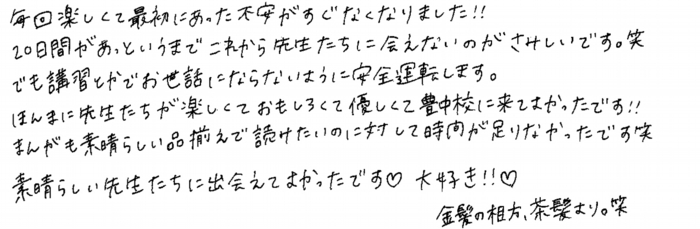 毎回楽しくて最初にあった不安がすぐなくなりました!!
20日間があっというまでこれから先生たちに会えないのがさみしいです。笑
でも講習とかでお世話にならないように安全運転します。
ほんまに先生たちが楽しくておもしろくて優しくて豊中校に来てよかったです!!
まんがも素晴らしい品揃えで読けたいのに対して時間が足りなかったです笑
素晴らしい先生たちに出会えてよかったです♡ 大好き!!♡
金髪の相方、茶髪より。笑